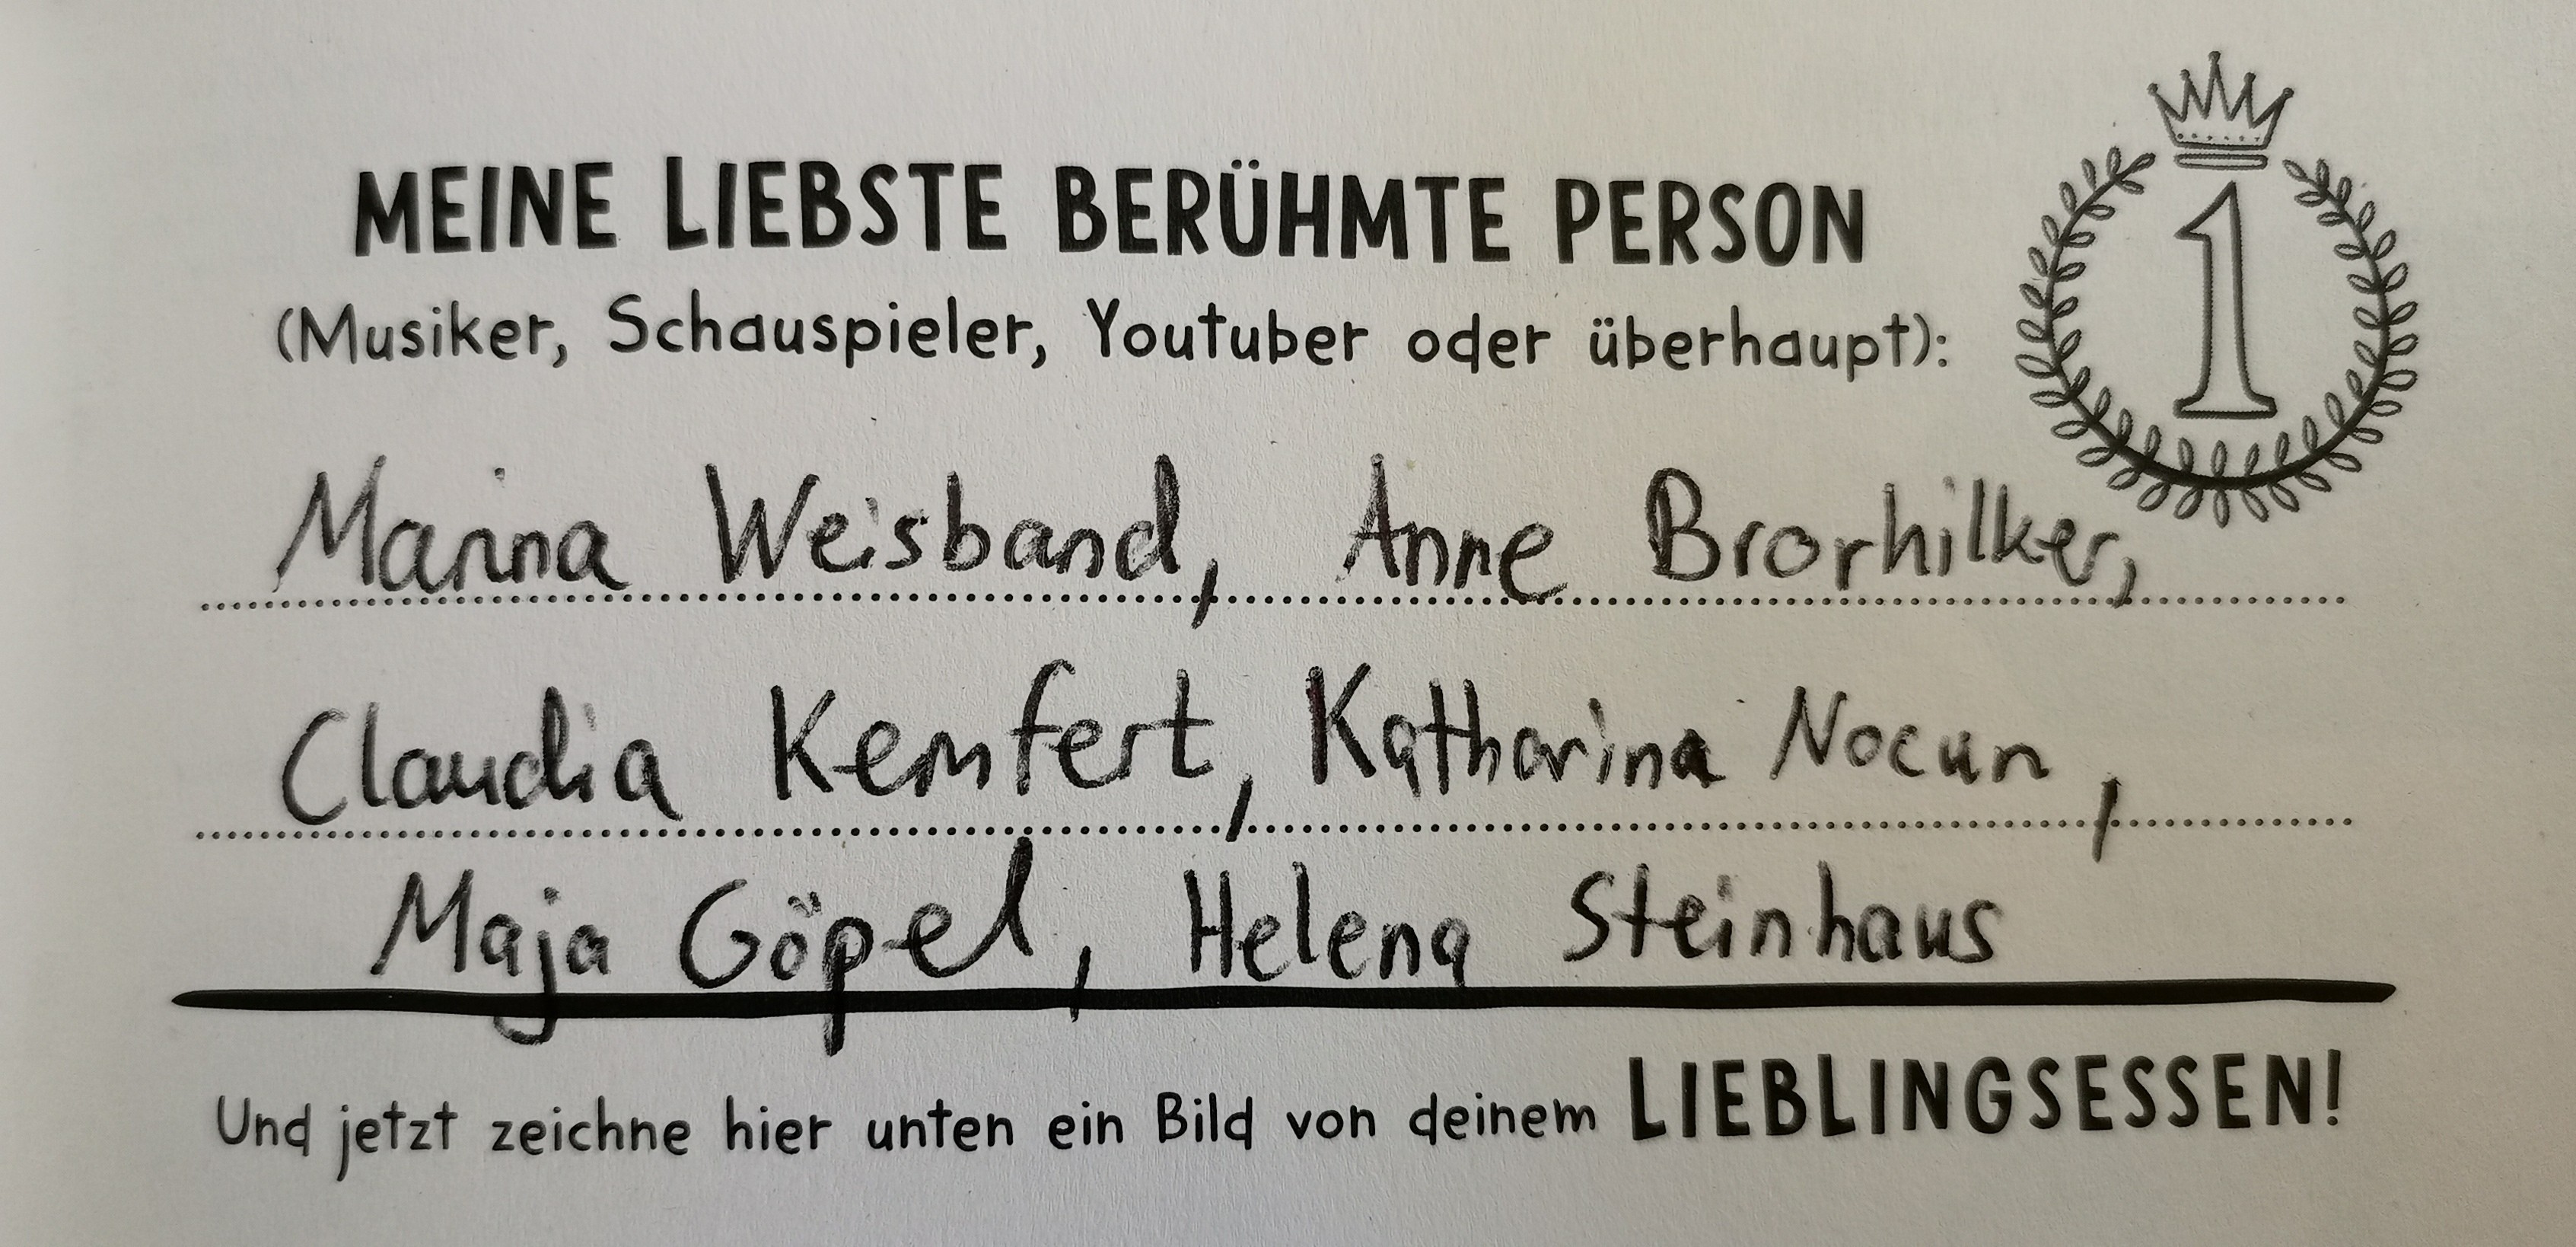 MEINE LIEBSTE BERÜHMTE PERSON
1
(Musiker, Schauspieler, Youtuber oder überhaupt):
Marina Weisband, Anne Brorhilker,
Claudia Kemfert, Katharina Nocun,
Maja Göpel, Helena Steinhaus
Und jetzt zeichne hier unten ein Bild von deinem LIEBLINGSESSEN!